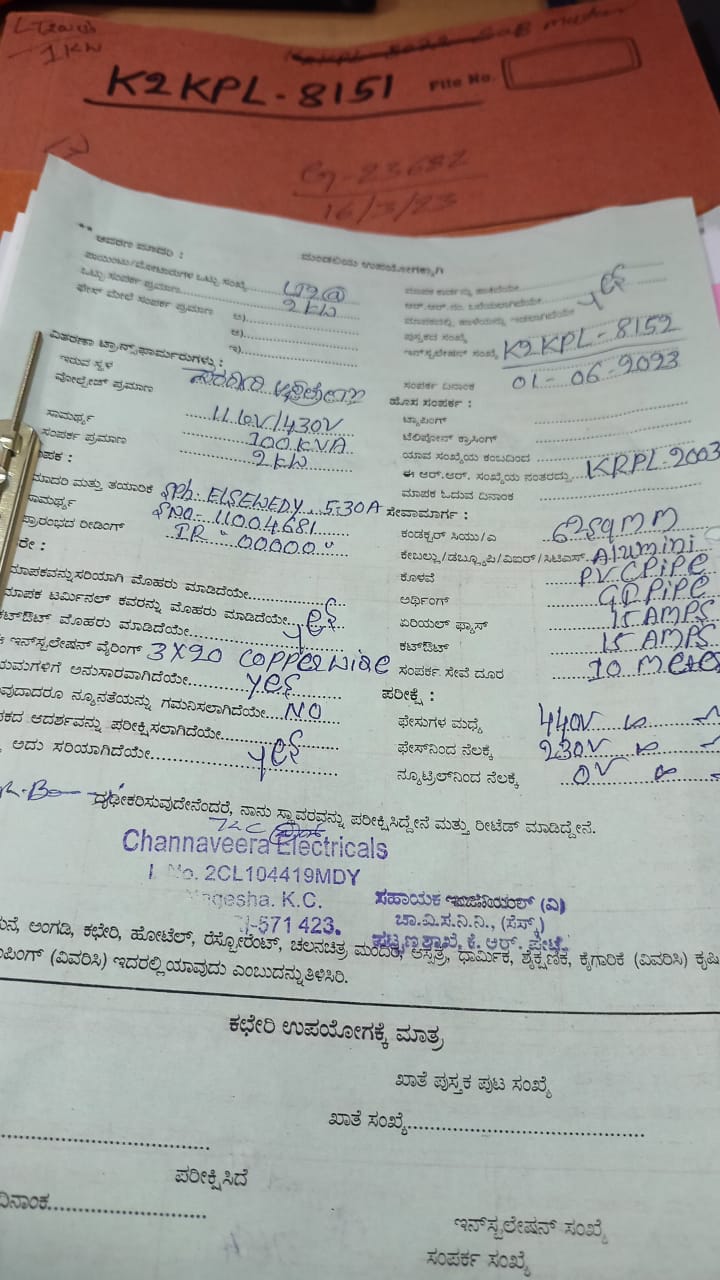 1KW
K2KPL-8151
File No.
16/3/23
**
ಆವರಣ ಮಾದರಿ :
ಮಂಡಳಿಯ ಉಪಯೋಗಕ್ಕಾಗಿ
ಪಾಯಿಂಟು/ಮೋಟಾರುಗಳ ಒಟ್ಟು ಸಂಖ್ಯೆ
ಒಟ್ಟು ಸಂಪರ್ಕ ಪ್ರಮಾಣ 2 kW
ಫೇಸ್ ಮೇಲೆ ಸಂಪರ್ಕ ಪ್ರಮಾಣ ಅ)
ಆ)
ಇ)
yes
ಪುಸ್ತಕದ ಸಂಖ್ಯೆ
ಇನ್‌ಸ್ಟಲೇಷನ್ ಸಂಖ್ಯೆ K2KPL-8152
ಸಂಪರ್ಕ ದಿನಾಂಕ 01-06-2023
ವಿತರಣಾ ಟ್ರಾನ್ಸ್‌ಫಾರ್ಮರುಗಳು :
ಇರುವ ಸ್ಥಳ
ವೋಲ್ಟೇಜ್ ಪ್ರಮಾಣ 11kV/430V
ಸಾಮರ್ಥ್ಯ 100KVA
ಸಂಪರ್ಕ ಪ್ರಮಾಣ 2kW
ಹೊಸ ಸಂಪರ್ಕ :
ಟ್ಯಾಪಿಂಗ್
ಟೆಲಿಫೋನ್ ಕ್ರಾಸಿಂಗ್
ಯಾವ ಸಂಖ್ಯೆಯ ಕಂಬದಿಂದ
ಈ ಆರ್.ಆರ್. ಸಂಖ್ಯೆಯ ನಂತರದ್ದು KRPL-2003
ಮಾಪಕ ಓದುವ ದಿನಾಂಕ
ಪಕ :
ಮಾದರಿ ಮತ್ತು ತಯಾರಿಕೆ ELSEWEDY 5-30A
ಸಾಮರ್ಥ್ಯ SNO-11004681
ಪ್ರಾರಂಭದ ರೀಡಿಂಗ್ IR "00000."
ಸೇವಾಮಾರ್ಗ :
ಕಂಡಕ್ಟರ್ ಸಿಯು/ಎ
ಕೇಬಲ್ಲು/ಡಬ್ಲ್ಯೂಪಿ/ವಿಐಆರ್/ಸಿಟಿಎಸ್ Alumini
ಕೊಳವೆ PVC PiPe
ಅರ್ಥಿಂಗ್ GI PiPe
ಏರಿಯಲ್ ಫ್ಯೂಸ್ 15 AMPS
ಕಟ್‌ಔಟ್ 15 AMPS
ಸಂಪರ್ಕ ಸೇವೆ ದೂರ 10 Meter
ರೇ :
ಮಾಪಕವನ್ನು ಸರಿಯಾಗಿ ಮೊಹರು ಮಾಡಿದೆಯೇ
ಮಾಪಕ ಟರ್ಮಿನಲ್ ಕವರನ್ನು ಮೊಹರು ಮಾಡಿದೆಯೇ yes
ಕಟ್‌ಔಟ್ ಮೊಹರು ಮಾಡಿದೆಯೇ
ಈ ಇನ್‌ಸ್ಟಲೇಷನ್ ವೈರಿಂಗ್ 3X20 COPPER WIRE
ಯಮಗಳಿಗೆ ಅನುಸಾರವಾಗಿದೆಯೇ yes
ವುದಾದರೂ ನ್ಯೂನತೆಯನ್ನು ಗಮನಿಸಲಾಗಿದೆಯೇ NO
ಪಕದ ಆದರ್ಶವನ್ನು ಪರೀಕ್ಷಿಸಲಾಗಿದೆಯೇ
ಅದು ಸರಿಯಾಗಿದೆಯೇ yes
ಪರೀಕ್ಷೆ :
ಫೇಸುಗಳ ಮಧ್ಯೆ 440V
ಫೇಸ್‌ನಿಂದ ನೆಲಕ್ಕೆ 230V
ನ್ಯೂಟ್ರಲ್‌ನಿಂದ ನೆಲಕ್ಕೆ 0V
ದೃಢೀಕರಿಸುವುದೇನೆಂದರೆ, ನಾನು ಸ್ಥಾವರವನ್ನು ಪರೀಕ್ಷಿಸಿದ್ದೇನೆ ಮತ್ತು ರೀಟೆಡ್ ಮಾಡಿದ್ದೇನೆ.
Channaveera Electricals
No. 2CL104419MDY
Nagesha. K.C.
-571 423.
ಸಹಾಯಕ ಇಂಜಿನಿಯರ್ (ವಿ)
ಚಾ.ವಿ.ಸ.ನಿ.ನಿ., (ಸೆಸ್ಕ್)
ಪಟ್ಟಣ ಶಾಖೆ, ಕೆ. ಆರ್. ಪೇಟೆ
ಮನೆ, ಅಂಗಡಿ, ಕಛೇರಿ, ಹೋಟೆಲ್, ರೆಸ್ಟೋರೆಂಟ್, ಚಲನಚಿತ್ರ ಮಂದಿರ, ಆಸ್ಪತ್ರೆ, ಧಾರ್ಮಿಕ, ಶೈಕ್ಷಣಿಕ, ಕೈಗಾರಿಕೆ (ವಿವರಿಸಿ) ಕೃಷಿ
ಪಿಂಗ್ (ವಿವರಿಸಿ) ಇದರಲ್ಲಿ ಯಾವುದು ಎಂಬುದನ್ನು ತಿಳಿಸಿರಿ.
ಕಛೇರಿ ಉಪಯೋಗಕ್ಕೆ ಮಾತ್ರ
ಖಾತೆ ಪುಸ್ತಕ ಪುಟ ಸಂಖ್ಯೆ
ಖಾತೆ ಸಂಖ್ಯೆ
ಪರೀಕ್ಷಿಸಿದೆ
ದಿನಾಂಕ
ಇನ್‌ಸ್ಟಲೇಷನ್ ಸಂಖ್ಯೆ
ಸಂಪರ್ಕ ಸಂಖ್ಯೆ